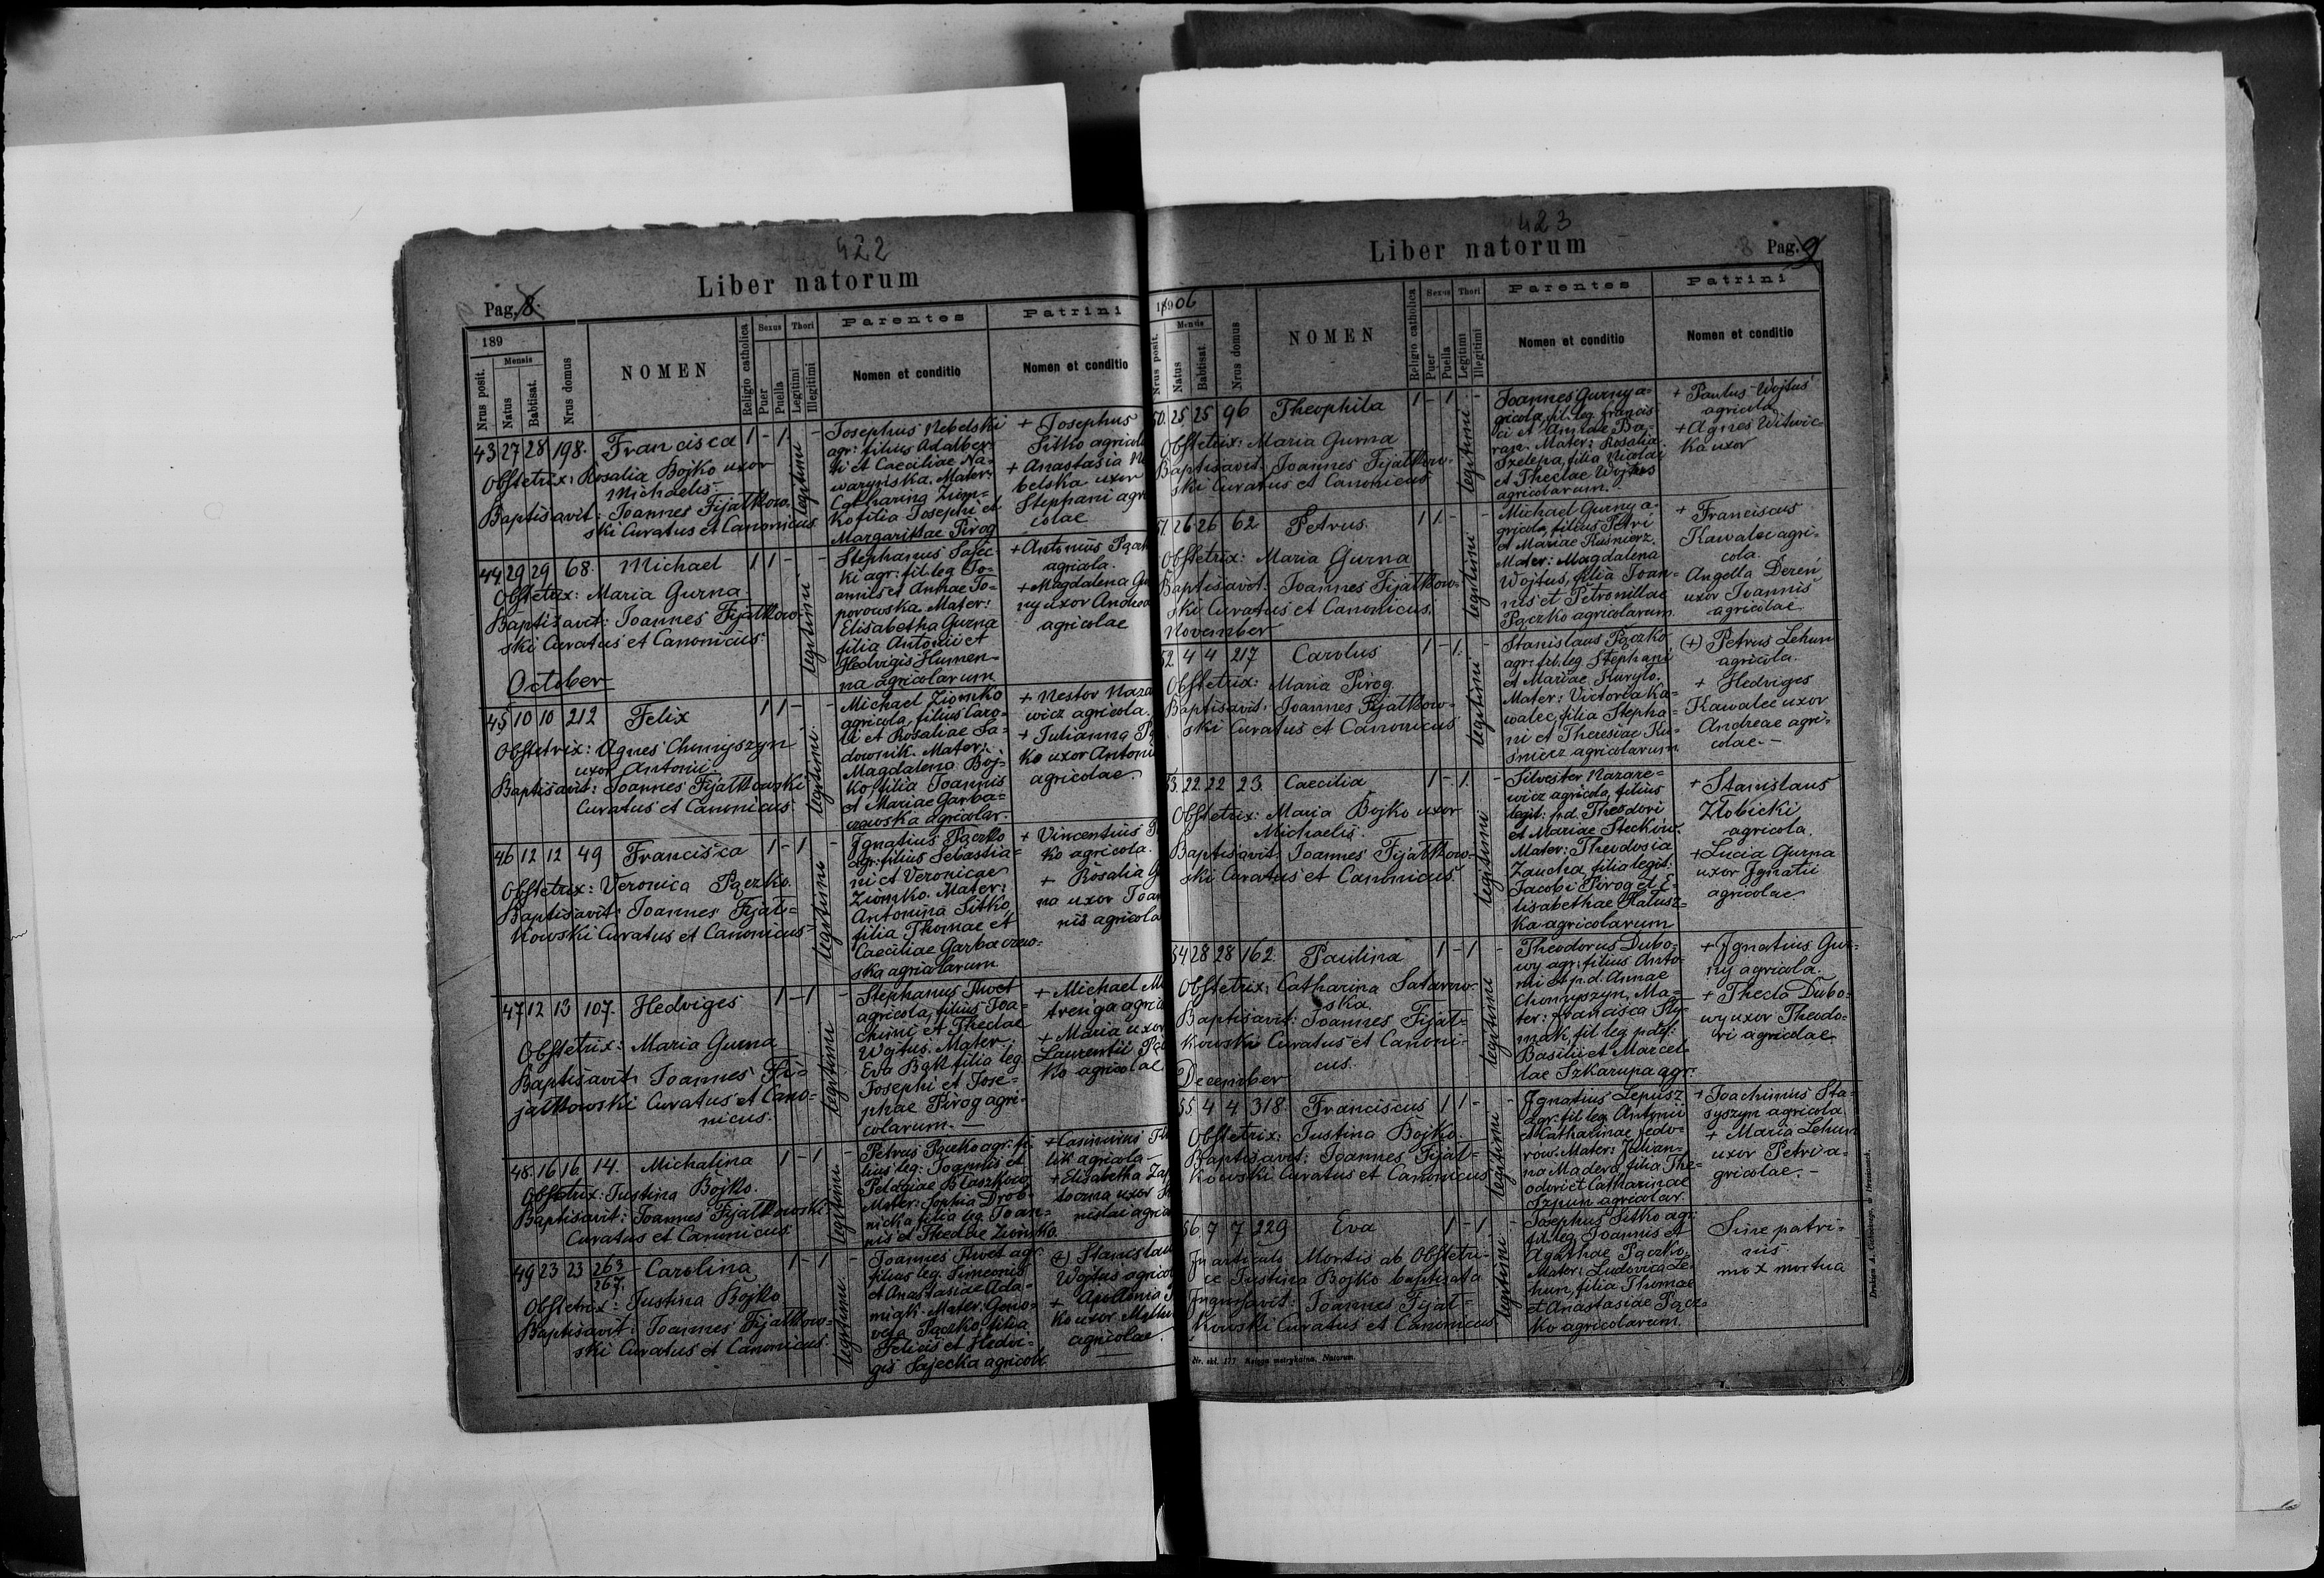 422
Liber natorum
Pag. 8.
189
Mensis
Nrus posit.
Natus
Babtisat.
Nrus domus
NOMEN
Religio catholica
Sexus
Puer
Puella
Thori
Legitimi
Illegitimi
Parentes
Nomen et conditio
Patrini
Nomen et conditio
43 27 28 198. Francisca 1 - 1 -
Obstetrix: Rosalia Bojko uxor
Michaelis.
Baptisavit: Joannes Fijałkow-
ski Curatus et Canonicus
legitimi
Josephus Nebelski
agr: filius Adalber-
ti et Caeciliae Na-
warynska. Mater:
Catharina Ziom-
ko filia Josephi et
Margarithae Pirog
+ Josephus
Sitko agricol
+ Anastasia N
belska uxor
Stephani agri
colae
44 29 29 68. Michael 1 1 - -
Obstetrix: Maria Gurna
Baptisavit: Joannes Fijałkow-
ski Curatus et Canonicus
legitimi
Stephanus Sajec-
ki agr: fil. leg Jo-
annis et Annae To-
porowska. Mater:
Elisabetha Gurna
filia Antonii et
Hedvigis Humen-
na agricolarum
+ Antonius
agricola.
+ Magdalena Gu
ny uxor Andrea
agricolae
October
45 10 10 212 Felix 1 1 - -
Obstetrix: Agnes Chomyszyn
uxor Antonii
Baptisavit: Joannes Fijałkowski
Curatus et Canonicus
legitimi
Michael Ziomko
agricola, filius Caro-
li et Rosaliae Sa-
downik. Mater:
Magdalena Boj-
ko, filia Joannis
et Mariae Garba-
czowska agricolar.
+ Nestor Naza
wicz agricola.
+ Julianna
ko uxor Antoni
agricolae
46 12 12 49 Francisca 1 - 1 -
Obstetrix: Veronica Pączko.
Baptisavit: Joannes Fijał-
kowski Curatus et Canonicus
legitimi
Ignatius Pączko
agr: filius Sebastia-
ni et Veronicae
Ziomko. Mater:
Antonina Sitko
filia Thomae et
Caeciliae Garbaczow-
ska agricolarum
+ Vincentius
ko agricola.
+ Rosalia G
na uxor Joan
nis agricola
47 12 13 107. Hedviges 1 - 1 -
Obstetrix: Maria Gurna
Baptisavit: Joannes Fi-
jałkowski Curatus et Cano-
nicus.
legitimi
Stephanus
agricola, filius Joa-
chimi et Theclae
Wojtus. Mater:
Eva Bąk filia leg
Josephi et Jose-
phae Pirog agri-
colarum. -
+ Michael M
trenga agrico
+ Maria uxor
Laurentii
ko agricolae
48. 16 16 14. Michalina 1 - 1 -
Obstetrix: Justina Bojko.
Baptisavit: Joannes Fijałkowski
Curatus et Canonicus
legitimi
Petrus Pączko agr: fi-
lius leg: Joannis et
Pelagiae Błaszków.
Mater: Sophia Drob-
nicka filia leg. Joan-
nis et Theclae Ziomko.
+ Casimirus
lik agricola -
+ Elisabetha
uxor
agrico
49 23 23 263/267. Carolina 1 - 1 -
Obstetrix: Justina Bojko
Baptisavit: Joannes Fijałkow-
ski Curatus et Canonicus.
legitimi
Joannes agr:
filius leg. Simeonis
et Anastasiae Ada-
miak. Mater: Geno-
vefa Pączko, filia
Felicis et Hedvi-
gis Sajecka agricol.
(+) Stanislau
Wojtus agrico
+ Apolonia
ko uxor
agricolae
423
Liber natorum
8 Pag. 9
1906
Mensis
Nrus posit.
Natus
Babtisat.
Nrus domus
NOMEN
Religio catholica
Sexus
Puer
Puella
Thori
Legitimi
Illegitimi
Parentes
Nomen et conditio
Patrini
Nomen et conditio
50. 25 25 96 Theophila 1 - 1 -
Obstetrix: Maria Gurna
Baptisavit: Joannes Fijałkow-
ski Curatus et Canonicus
legitimi
Joannes Gurny a-
gricola, fil. leg. Francis-
ci et Annae Ba-
ran. Mater: Rosalia
Szelepa, filia Nicolai
et Theclae Wojtus
agricolarum. -
+ Paulus Wojtus
agricola
+ Agnes Witwic-
ka uxor
51. 26 26 62 Petrus. 1 1 - -
Obstetrix: Maria Gurna
Baptisavit: Joannes Fijałkow-
ski Curatus et Canonicus.
legitimi
Michael Gurny a-
gricola, filius Petri
et Mariae Kuśnierz.
Mater: Magdalena
Wojtus, filia Joan-
nis et Petronillae
Pączko agricolarum
+ Franciscus
Kawalec agri-
cola.
Angella Dereń
uxor Joannis
agricolae
November
52. 4 4 217 Carolus 1 - 1. -
Obstetrix: Maria Pirog
Baptisavit: Joannes Fijałkow-
ski Curatus et Canonicus
legitimi
Stanislaus Pączko,
agr: fil. leg Stephani
et Mariae Kuryło.
Mater: Victoria Ka-
walec, filia Stepha-
ni et Theresiae Ku-
śnierz agricolarum
(+) Petrus Lehun
agricola.
+ Hedviges
Kawalec uxor
Andreae agri-
colae. -
53. 22. 22 23. Caecilia 1 - 1. -
Obstetrix: Maria Bojko uxor
Michaelis.
Baptisavit: Joannes Fijałkow-
ski Curatus et Canonicus.
legitimi
Silvester Nazare-
wicz agricola, filius
legit: p.d. Theodori
et Mariae Steckow.
Mater: Theodosia
Zaucha, filia legit:
Jacobi Pirog et E-
lisabethae Hałusz-
ka agricolarum
+ Stanislaus
Złobicki
agricola.
+ Lucia Gurna
uxor Ignatii
agricolae
54 28 28 162. Paulina 1 - 1 -
Obstetrix: Catharina Satarow-
ska.
Baptisavit: Joannes Fijał-
kowski Curatus et Canoni-
cus.
legitimi
Theodorus Dubo-
wy agr: filius Anto-
nii et p.d. Annae
Chomyszyn, Ma-
ter: Francisca
fil leg pdef:
Basilii et Marcel-
lae Szkarupa agr:
+ Ignatius Gur-
ny agricola.
+ Thecla Dubo-
wy uxor Theodo-
ri agricolae
December
55 4 4 318. Franciscus 1 1 - -
Obstetrix: Justina Bojko.
Baptisavit: Joannes Fijał-
kowski Curatus et Canonicus
legitimi
Ignatius Lepusz
agr: fil leg Antonii
et Catharinae Fedo-
row. Mater: Julian-
na Madera, filia The-
odori et Catharinae
Szpun agricolar.
+ Joachimus Sta-
syszyn agricola
+ Maria Lehun
uxor Petri a-
gricolae. -
56. 7 7 229 Eva 1 - 1 -
In articulo Mortis ab Obstetri-
ce Justina Bojko baptisata
Ingrossavit: Joannes Fijał-
kowski Curatus et Canonicus
legitimi
Josephus Sitko agr:
fil. leg. Joannis et
Agathae Pączko.
Mater: Ludovica Le-
hun, filia Thomae
et Anastasiae Pącz-
ko agricolarum.
Sine patri-
nis
mox mortua
Nr. skl. 177 Księga metrykalna. Natorum.